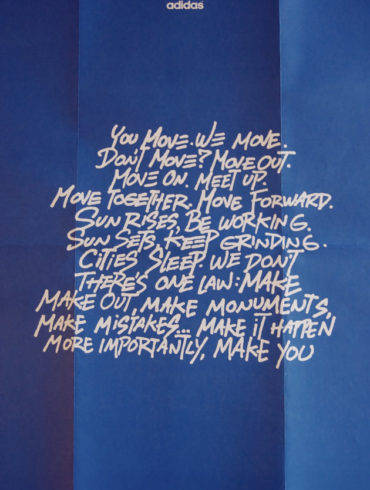 adidas
YOU MOVE. WE MOVE.
DON'T MOVE? MOVE OUT.
MOVE ON. MEET UP.
MOVE TOGETHER. MOVE FORWARD.
SUN RISES, BE WORKING.
SUN SETS, KEEP GRINDING.
CITIES SLEEP. WE DON'T
THERE'S ONE LAW: MAKE
MAKE OUT, MAKE MONUMENTS,
MAKE MISTAKES... MAKE IT HAPPEN
MORE IMPORTANTLY, MAKE YOU